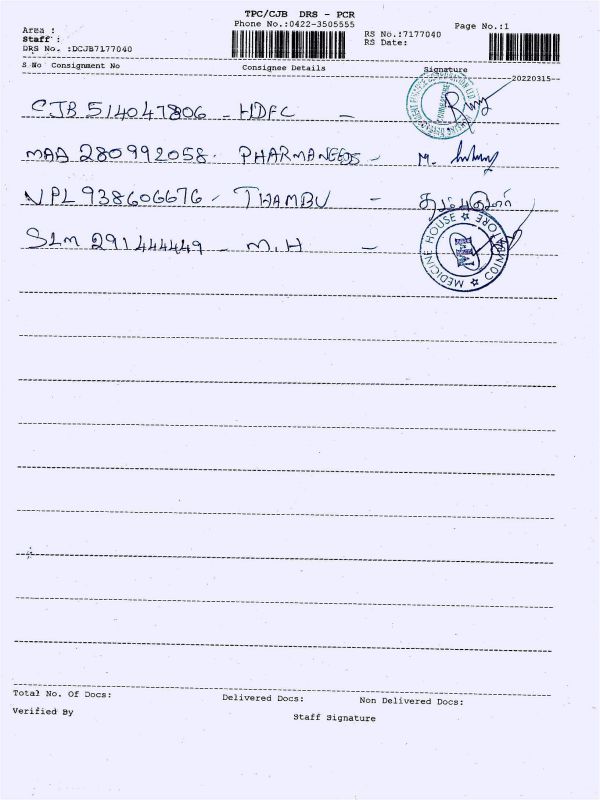 TPC/CJB DRS - PCR
Phone No.:0422-3505555
Page No.:1
Area :
Staff :
DRS No. :DCJB7177040
RS No.:7177040
RS Date:
S No Consignment No Consignee Details Signature
20220315--
CJB 514047806 - HDFC -
MAA 280992058 - PHARMANEEDS - M.
NPL 938606676 - THAMBU -
SLM 291444449 - M.H -
MEDICINE HOUSE ☆ COIMBATORE ☆
MH
Total No. Of Docs: Delivered Docs: Non Delivered Docs:
Verified By
Staff Signature